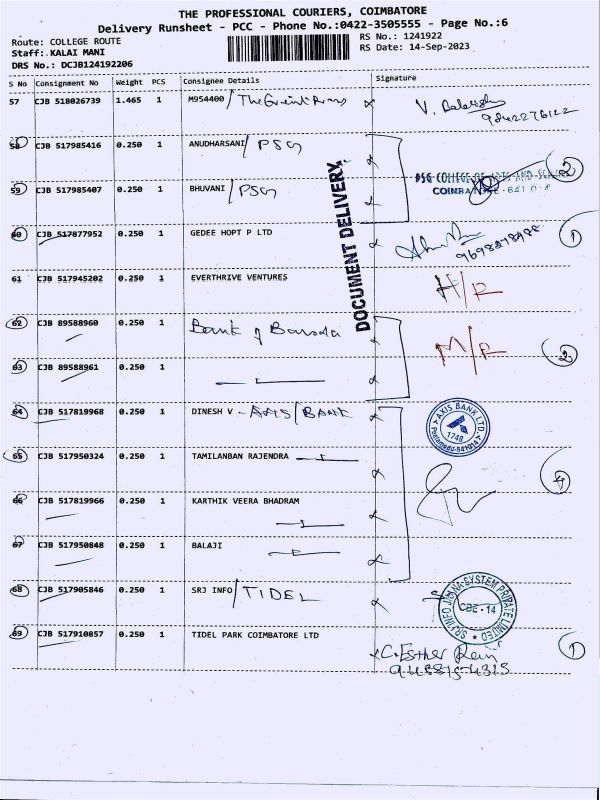 THE PROFESSIONAL COURIERS, COIMBATORE
Delivery Runsheet - PCC - Phone No.:0422-3505555 - Page No.:6
Route: COLLEGE ROUTE
RS No.: 1241922
Staff: KALAI MANI
RS Date: 14-Sep-2023
DRS No.: DCJB124192206
S No Consignment No Weight PCS Consignee Details Signature
57 CJB 518026739 1.465 1 M954400/
58 CJB 517985416 0.250 1 ANUDHARSANI/PSG
59 CJB 517985407 0.250 1 BHUVANI/PSG
PSG COLLEGE OF ARTS AND
2
DOCUMENT DELIVERY.
60 CJB 517877952 0.250 1 GEDEE HOPT P LTD
1
61 CJB 517945202 0.250 1 EVERTHRIVE VENTURES
62 CJB 89588960 0.250 1 Bank of Baroda
M/R
2
63 CJB 89588961 0.250 1
64 CJB 517819968 0.250 1 DINESH V - AXIS/BANK
AXIS BANK LTD.
1748
65 CJB 517950324 0.250 1 TAMILANBAN RAJENDRA
4
66 CJB 517819966 0.250 1 KARTHIK VEERA BHADRAM
67 CJB 517950848 0.250 1 BALAJI
68 CJB 517905846 0.250 1 SRJ INFO/TIDEL
CBE - 14
69 CJB 517910857 0.250 1 TIDEL PARK COIMBATORE LTD
1
C. Esther